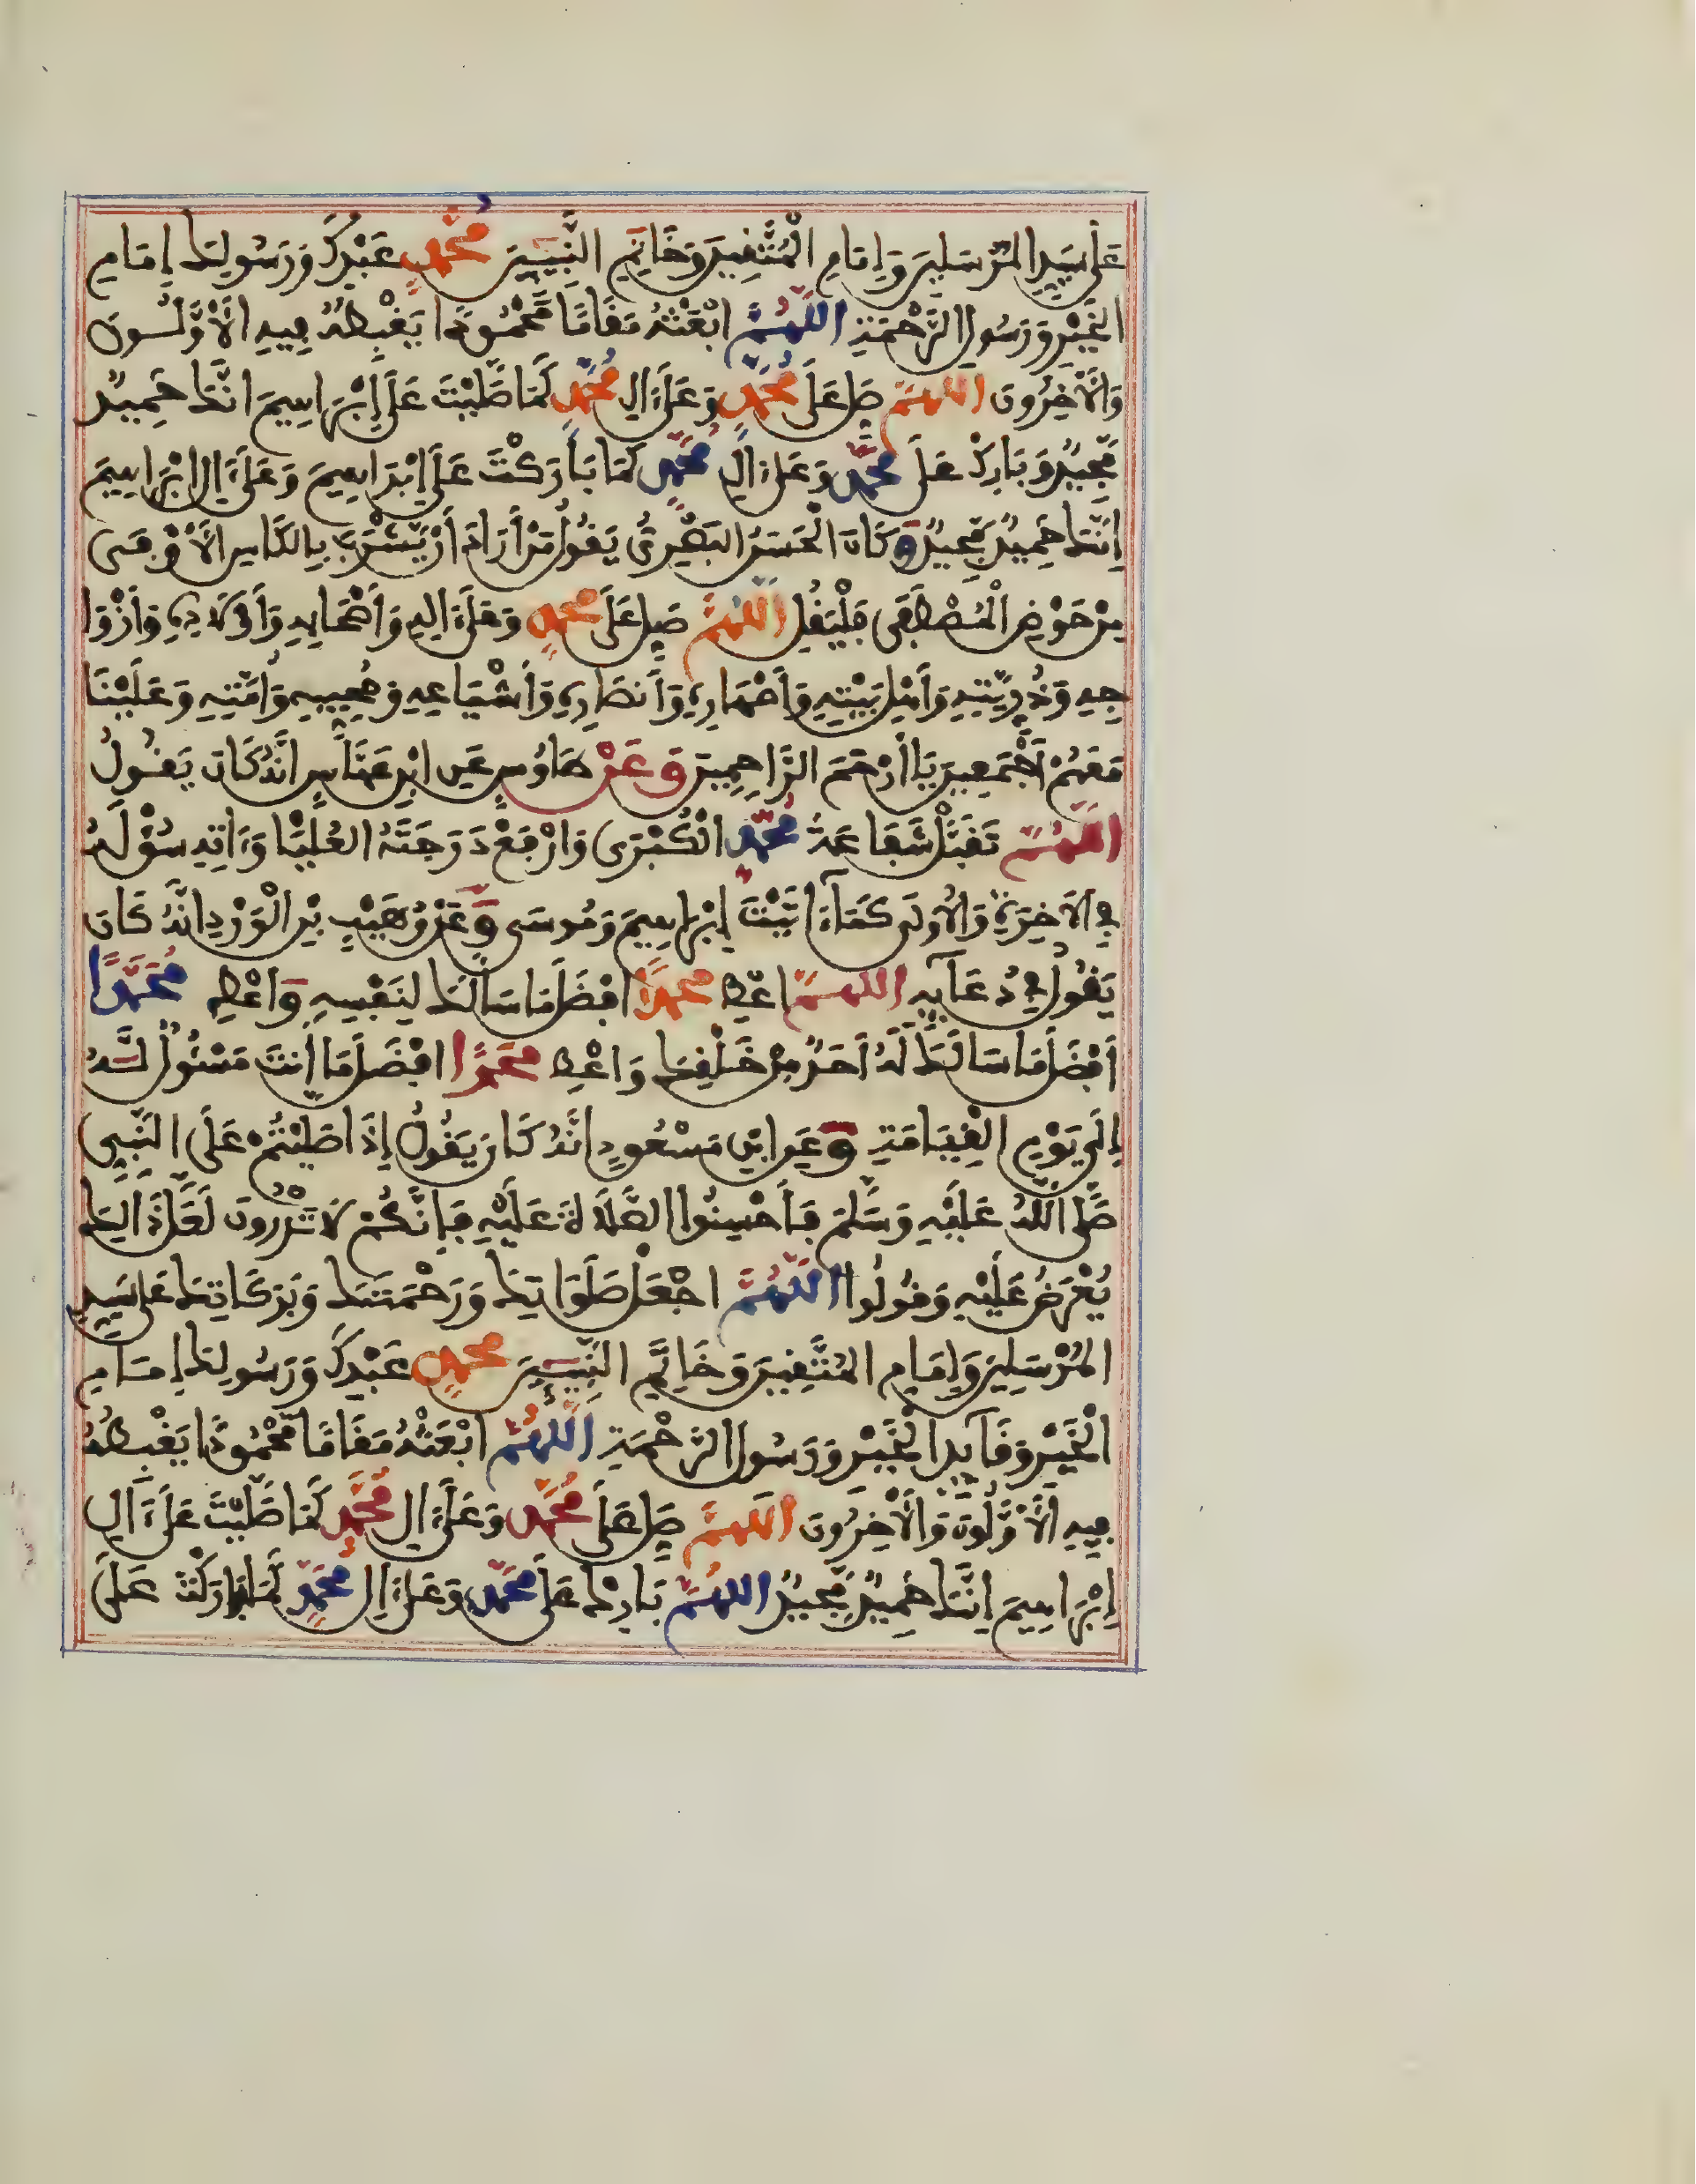 عَلَى سَيِّدِ الْمُرْسَلِينَ وَإِمَامِ الْمُتَّقِينَ وَخَاتِمِ النَّبِيِّينَ مُحَمَّدٍ عَبْدِكَ وَرَسُولِكَ إِمَامِ
الْخَيْرِ وَرَسُولِ الرَّحْمَةِ اللَّهُمَّ ابْعَثْهُ مَقَامًا مَّحْمُودًا يَغْبِطُهُ فِيهِ الْأَوَّلُونَ
وَالْآخِرُونَ اللَّهُمَّ صَلِّ عَلَى مُحَمَّدٍ وَعَلَى ءَالِ مُحَمَّدٍ كَمَا صَلَّيْتَ عَلَى إِبْرَاهِيمَ إِنَّكَ حَمِيدٌ
مَّجِيدٌ وَبَارِكْ عَلَى مُحَمَّدٍ وَعَلَى ءَالِ مُحَمَّدٍ كَمَا بَارَكْتَ عَلَى إِبْرَاهِيمَ وَعَلَى ءَالِ إِبْرَاهِيمَ
إِنَّكَ حَمِيدٌ مَّجِيدٌ وَكَانَ الْحَسَنُ الْبَصْرِيُّ يَقُولُ مَنْ أَرَادَ أَنْ يَّشْرَبَ بِالْكَاسِ الْأَوْفَى
مِنْ حَوْضِ الْمُصْطَفَى فَلْيَقُلِ اللَّهُمَّ صَلِّ عَلَى مُحَمَّدٍ وَعَلَى ءَالِهِ وَأَصْحَابِهِ وَأَوْلَادِهِ وَأَزْوَا
جِهِ وَذُرِّيَّتِهِ وَأَهْلِ بَيْتِهِ وَأَصْهَارِهِ وَأَنصَارِهِ وَأَشْيَاعِهِ وَمُحِبِّيهِ وَأُمَّتِهِ وَعَلَيْنَا
مَعَهُمْ أَجْمَعِينَ يَا أَرْحَمَ الرَّاحِمِينَ وَعَنْ طَاوُسٍ عَنِ ابْنِ عَبَّاسٍ أَنَّهُ كَانَ يَقُولُ
اللَّهُمَّ تَقَبَّلْ شَفَاعَةَ مُحَمَّدٍ الْكُبْرَى وَارْفَعْ دَرَجَتَهُ الْعُلْيَا وَءَاتِهِ سُؤْلَهُ
فِي الْآخِرَةِ وَالْأُولَى كَمَا ءَاتَيْتَ إِبْرَاهِيمَ وَمُوسَى وَعَنْ وُهَيْبِ بْنِ الْوَرْدِ أَنَّهُ كَانَ
يَقُولُ فِي دُعَآئِهِ اللَّهُمَّ أَعْطِ مُحَمَّدًا أَفْضَلَ مَا سَأَلَكَ لِنَفْسِهِ وَأَعْطِ مُحَمَّدًا
أَفْضَلَ مَا سَأَلَكَ لَهُ أَحَدٌ مِّنْ خَلْقِكَ وَأَعْطِ مُحَمَّدًا أَفْضَلَ مَا أَنتَ مَسْئُولٌ لَّهُ
إِلَى يَوْمِ الْقِيَامَةِ وَعَنِ ابْنِ مَسْعُودٍ أَنَّهُ كَانَ يَقُولُ إِذَا صَلَّيْتُمْ عَلَى النَّبِيِّ
صَلَّى اللَّهُ عَلَيْهِ وَسَلَّمَ فَأَحْسِنُوا الصَّلَاةَ عَلَيْهِ فَإِنَّكُمْ لَا تَدْرُونَ لَعَلَّ ذَالِكَ
يُعْرَضُ عَلَيْهِ وَقُولُوا اللَّهُمَّ اجْعَلْ صَلَوَاتِكَ وَرَحْمَتَكَ وَبَرَكَاتِكَ عَلَى سَيِّدِ
الْمُرْسَلِينَ وَإِمَامِ الْمُتَّقِينَ وَخَاتِمِ النَّبِيِّينَ مُحَمَّدٍ عَبْدِكَ وَرَسُولِكَ إِمَامِ
الْخَيْرِ وَقَآئِدِ الْخَيْرِ وَرَسُولِ الرَّحْمَةِ اللَّهُمَّ ابْعَثْهُ مَقَامًا مَّحْمُودًا يَغْبِطُهُ
فِيهِ الْأَوَّلُونَ وَالْآخِرُونَ اللَّهُمَّ صَلِّ عَلَى مُحَمَّدٍ وَعَلَى ءَالِ مُحَمَّدٍ كَمَا صَلَّيْتَ عَلَى ءَالِ
إِبْرَاهِيمَ إِنَّكَ حَمِيدٌ مَّجِيدٌ اللَّهُمَّ بَارِكْ عَلَى مُحَمَّدٍ وَعَلَى ءَالِ مُحَمَّدٍ كَمَا بَارَكْتَ عَلَى